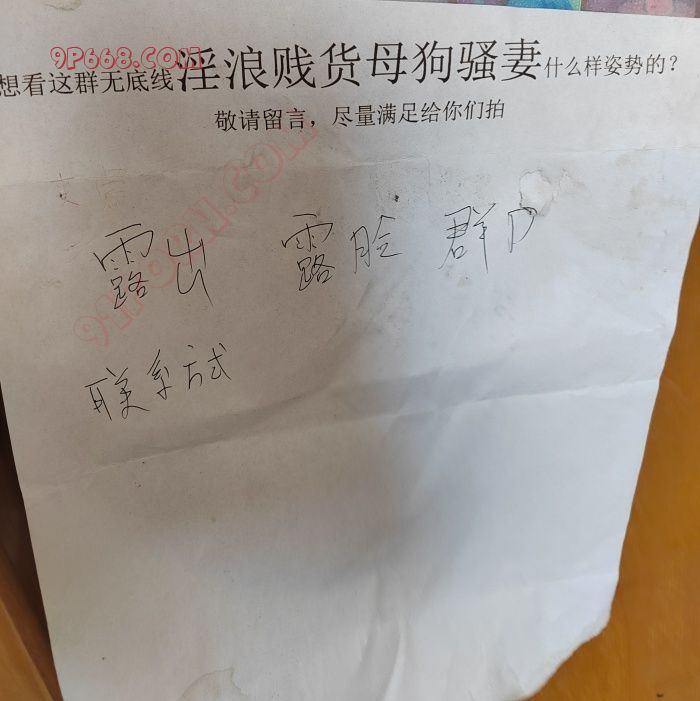 9P668.COM
想看这群无底线淫浪贱货母狗骚妻什么样姿势的？
敬请留言，尽量满足给你们拍
露出 露脸 群P
联系方式